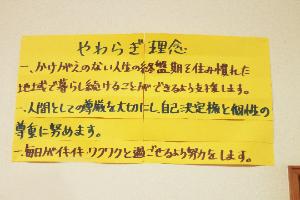 やわらぎ理念
一、かけがえのない人生の終盤期を住み慣れた
地域で暮らし続けることができるよう支援します。
一、人間としての尊厳を大切にし、自己決定権と個性の
尊重に努めます。
一、毎日がイキイキ・ワクワクと過ごせるよう努力をします。